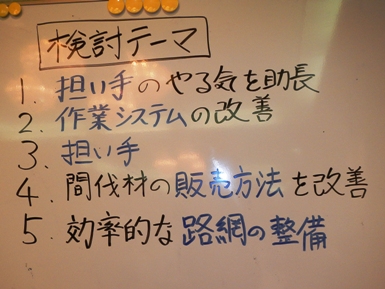 検討テーマ
1. 担い手のやる気を助長
2. 作業システムの改善
3. 担い手
4. 間伐材の販売方法を改善
5. 効率的な路網の整備